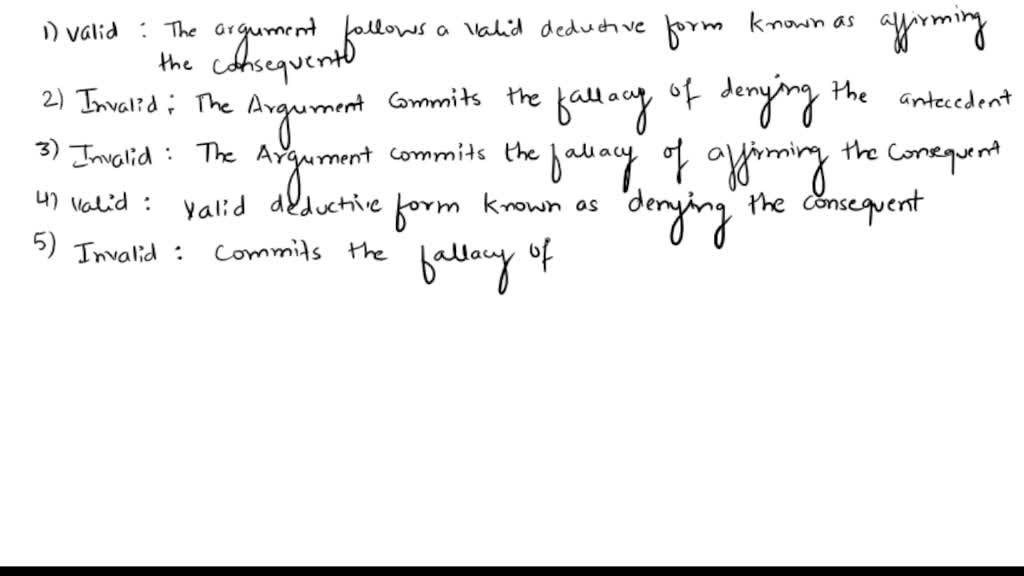 1) Valid : The argument follows a valid deductive form known as affirming
the consequent
2) Invalid : The Argument Commits the fallacy of denying the antecedent
3) Invalid : The Argument commits the fallacy of affirming the Consequent
4) Valid : Valid deductive form known as denying the consequent
5) Invalid : Commits the fallacy of